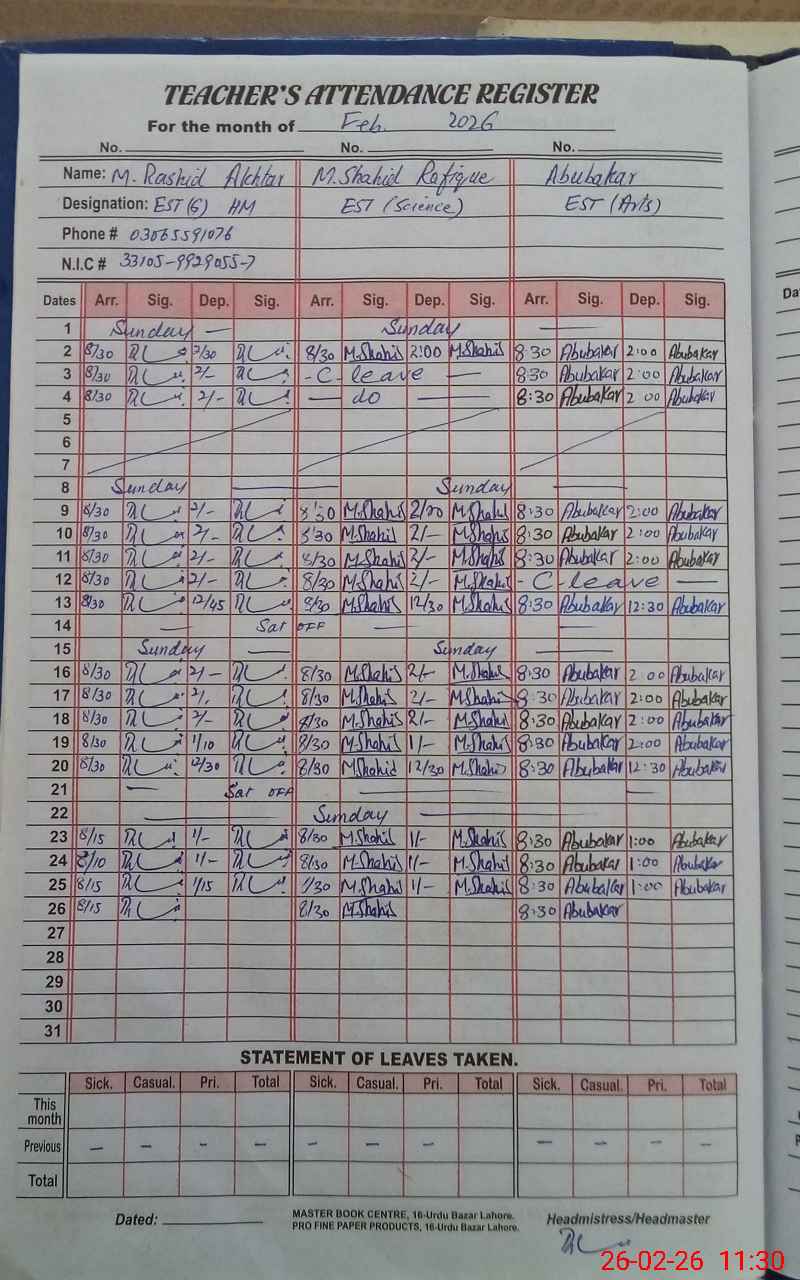 TEACHER'S ATTENDANCE REGISTER
For the month of Feb. 2026
No. No. No.
Name: M. Rashid Akhtar M. Shahid Rafique Abubakar
Designation: EST(G) HM EST (Science) EST (Arts)
Phone # 03065591076
N.I.C # 33105-9929055-7
Dates Arr. Sig. Dep. Sig. Arr. Sig. Dep. Sig. Arr. Sig. Dep. Sig.
1 Sunday — Sunday —
2 8/30 2/30 8/30 M.Shahid 2:00 M.Shahid 8:30 Abubakar 2:00 Abubakar
3 8/30 2/- - C- leave — 8:30 Abubakar 2:00 Abubakar
4 8/30 2/- — do — 8:30 Abubakar 2 00 Abubakar
5
6
7
8 Sunday — Sunday —
9 8/30 2/- 8:30 M.Shahid 2/00 M.Shahid 8:30 Abubakar 2:00 Abubakar
10 8/30 2/- 8/30 M.Shahid 2/- M.Shahid 8:30 Abubakar 2:00 Abubakar
11 8/30 2/- 8/30 M.Shahid 2/- M.Shahid 8:30 Abubakar 2:00 Abubakar
12 8/30 2/- 8/30 M.Shahid 2/- M.Shahid - C leave —
13 8/30 12/45 8/30 M.Shahid 12/30 M.Shahid 8:30 Abubakar 12:30 Abubakar
14 — Sat OFF — —
15 Sunday — Sunday —
16 8/30 2/- 8/30 M.Shahid 2/- M.Shahid 8:30 Abubakar 2:00 Abubakar
17 8/30 2/. 8/30 M.Shahid 2/- M.Shahid 8:30 Abubakar 2:00 Abubakar
18 8/30 2/- 8/30 M.Shahid 2/- M.Shahid 8:30 Abubakar 2:00 Abubakar
19 8/30 1/10 8/30 M.Shahid 1/- M.Shahid 8:30 Abubakar 2:00 Abubakar
20 8/30 12/30 8/30 M.Shahid 12/30 M.Shahid 8:30 Abubakar 12:30 Abubakar
21 — Sat OFF — —
22 — Sunday —
23 8/15 1/- 8/30 M.Shahid 1/- M.Shahid 8:30 Abubakar 1:00 Abubakar
24 8/10 1/- 8/30 M.Shahid 1/- M.Shahid 8:30 Abubakar 1:00 Abubakar
25 8/15 1/15 8/30 M.Shahid 1/- M.Shahid 8:30 Abubakar 1:00 Abubakar
26 8/15 8/30 M.Shahid 8:30 Abubakar
27
28
29
30
31
STATEMENT OF LEAVES TAKEN.
Sick. Casual. Pri. Total Sick. Casual. Pri. Total Sick. Casual. Pri. Total
This month
Previous — — — — — — — — — —
Total
Dated: MASTER BOOK CENTRE, 16-Urdu Bazar Lahore. Headmistress/Headmaster
PRO FINE PAPER PRODUCTS, 16-Urdu Bazar Lahore.
26-02-26 11:30